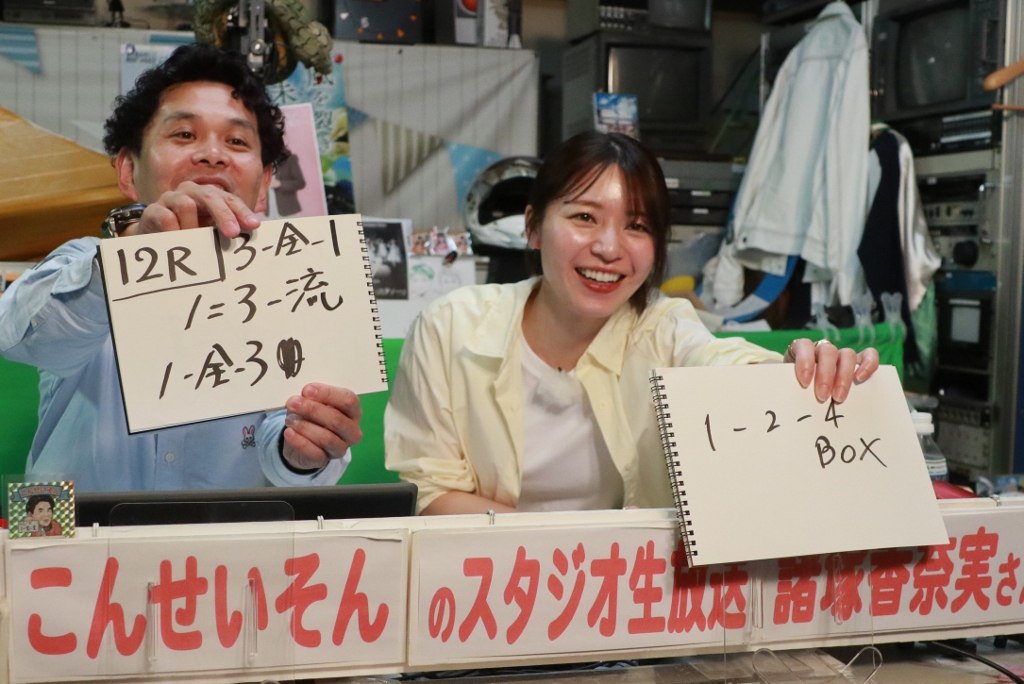 12R 3-全-1
1=3-流
1-全-3
1-2-4
BOX
こんせいそん
のスタジオ生放送 諸塚香奈実さん